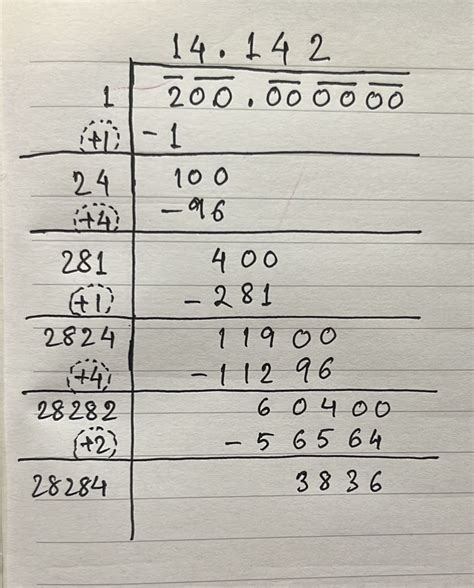 14.142
1 200.000000
(+1) -1
24 100
(+4) -96
281 400
(+1) -281
2824 11900
(+4) -11296
28282 60400
(+2) -56564
28284 3836